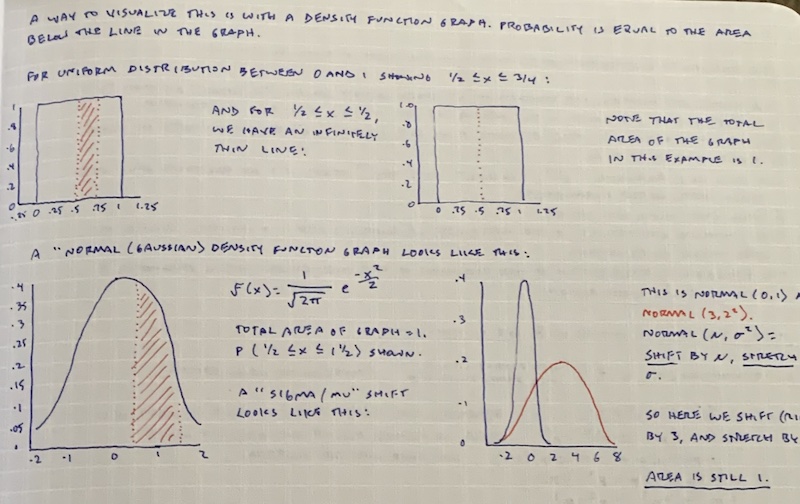 A WAY TO VISUALIZE THIS IS WITH A DENSITY FUNCTION GRAPH. PROBABILITY IS EQUAL TO THE AREA
BELOW THE LINE IN THE GRAPH.
FOR UNIFORM DISTRIBUTION BETWEEN 0 AND 1 SHOWING 1/2 ≤ X ≤ 3/4 :
1
.8
.6
.4
.2
0
-.25 0 .25 .5 .75 1 1.25
AND FOR 1/2 ≤ X ≤ 1/2,
WE HAVE AN INFINITELY
THIN LINE:
1.0
.8
.6
.4
.2
0 .25 .5 .75 1 1.25
NOTE THAT THE TOTAL
AREA OF THE GRAPH
IN THIS EXAMPLE IS 1.
A "NORMAL (GAUSSIAN) DENSITY FUNCTION GRAPH LOOKS LIKE THIS:
.4
.35
.3
.25
.2
.15
.1
.05
0
-2 -1 0 1 2
f(x) = 1/√2π e^(-x²/2)
TOTAL AREA OF GRAPH = 1.
P (1/2 ≤ X ≤ 1 1/2) SHOWN.
A "SIGMA/MU" SHIFT
LOOKS LIKE THIS:
.4
.3
.2
.1
0
-2 0 2 4 6 8
THIS IS NORMAL (0,1)
NORMAL (3,2²).
NORMAL (N, σ²) =
SHIFT BY N, STRETCH
σ.
SO HERE WE SHIFT
BY 3, AND STRETCH BY
AREA IS STILL 1.